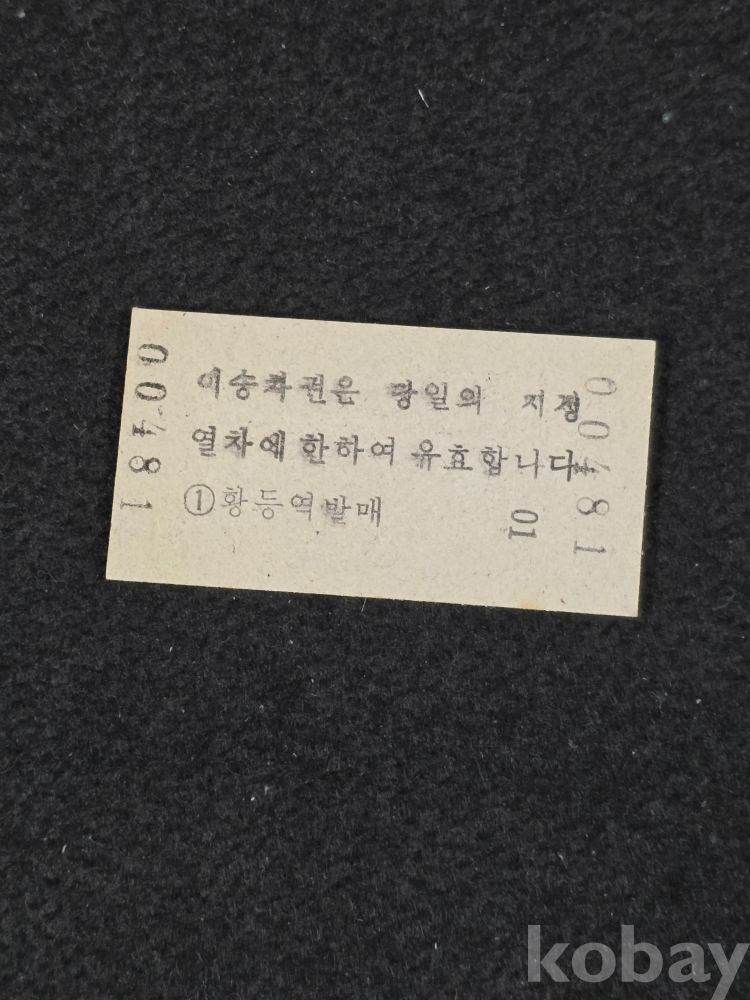 이승차권은 당일의 지정
열차에 한하여 유효합니다
①황등역발매
01
00481
00481
kobay